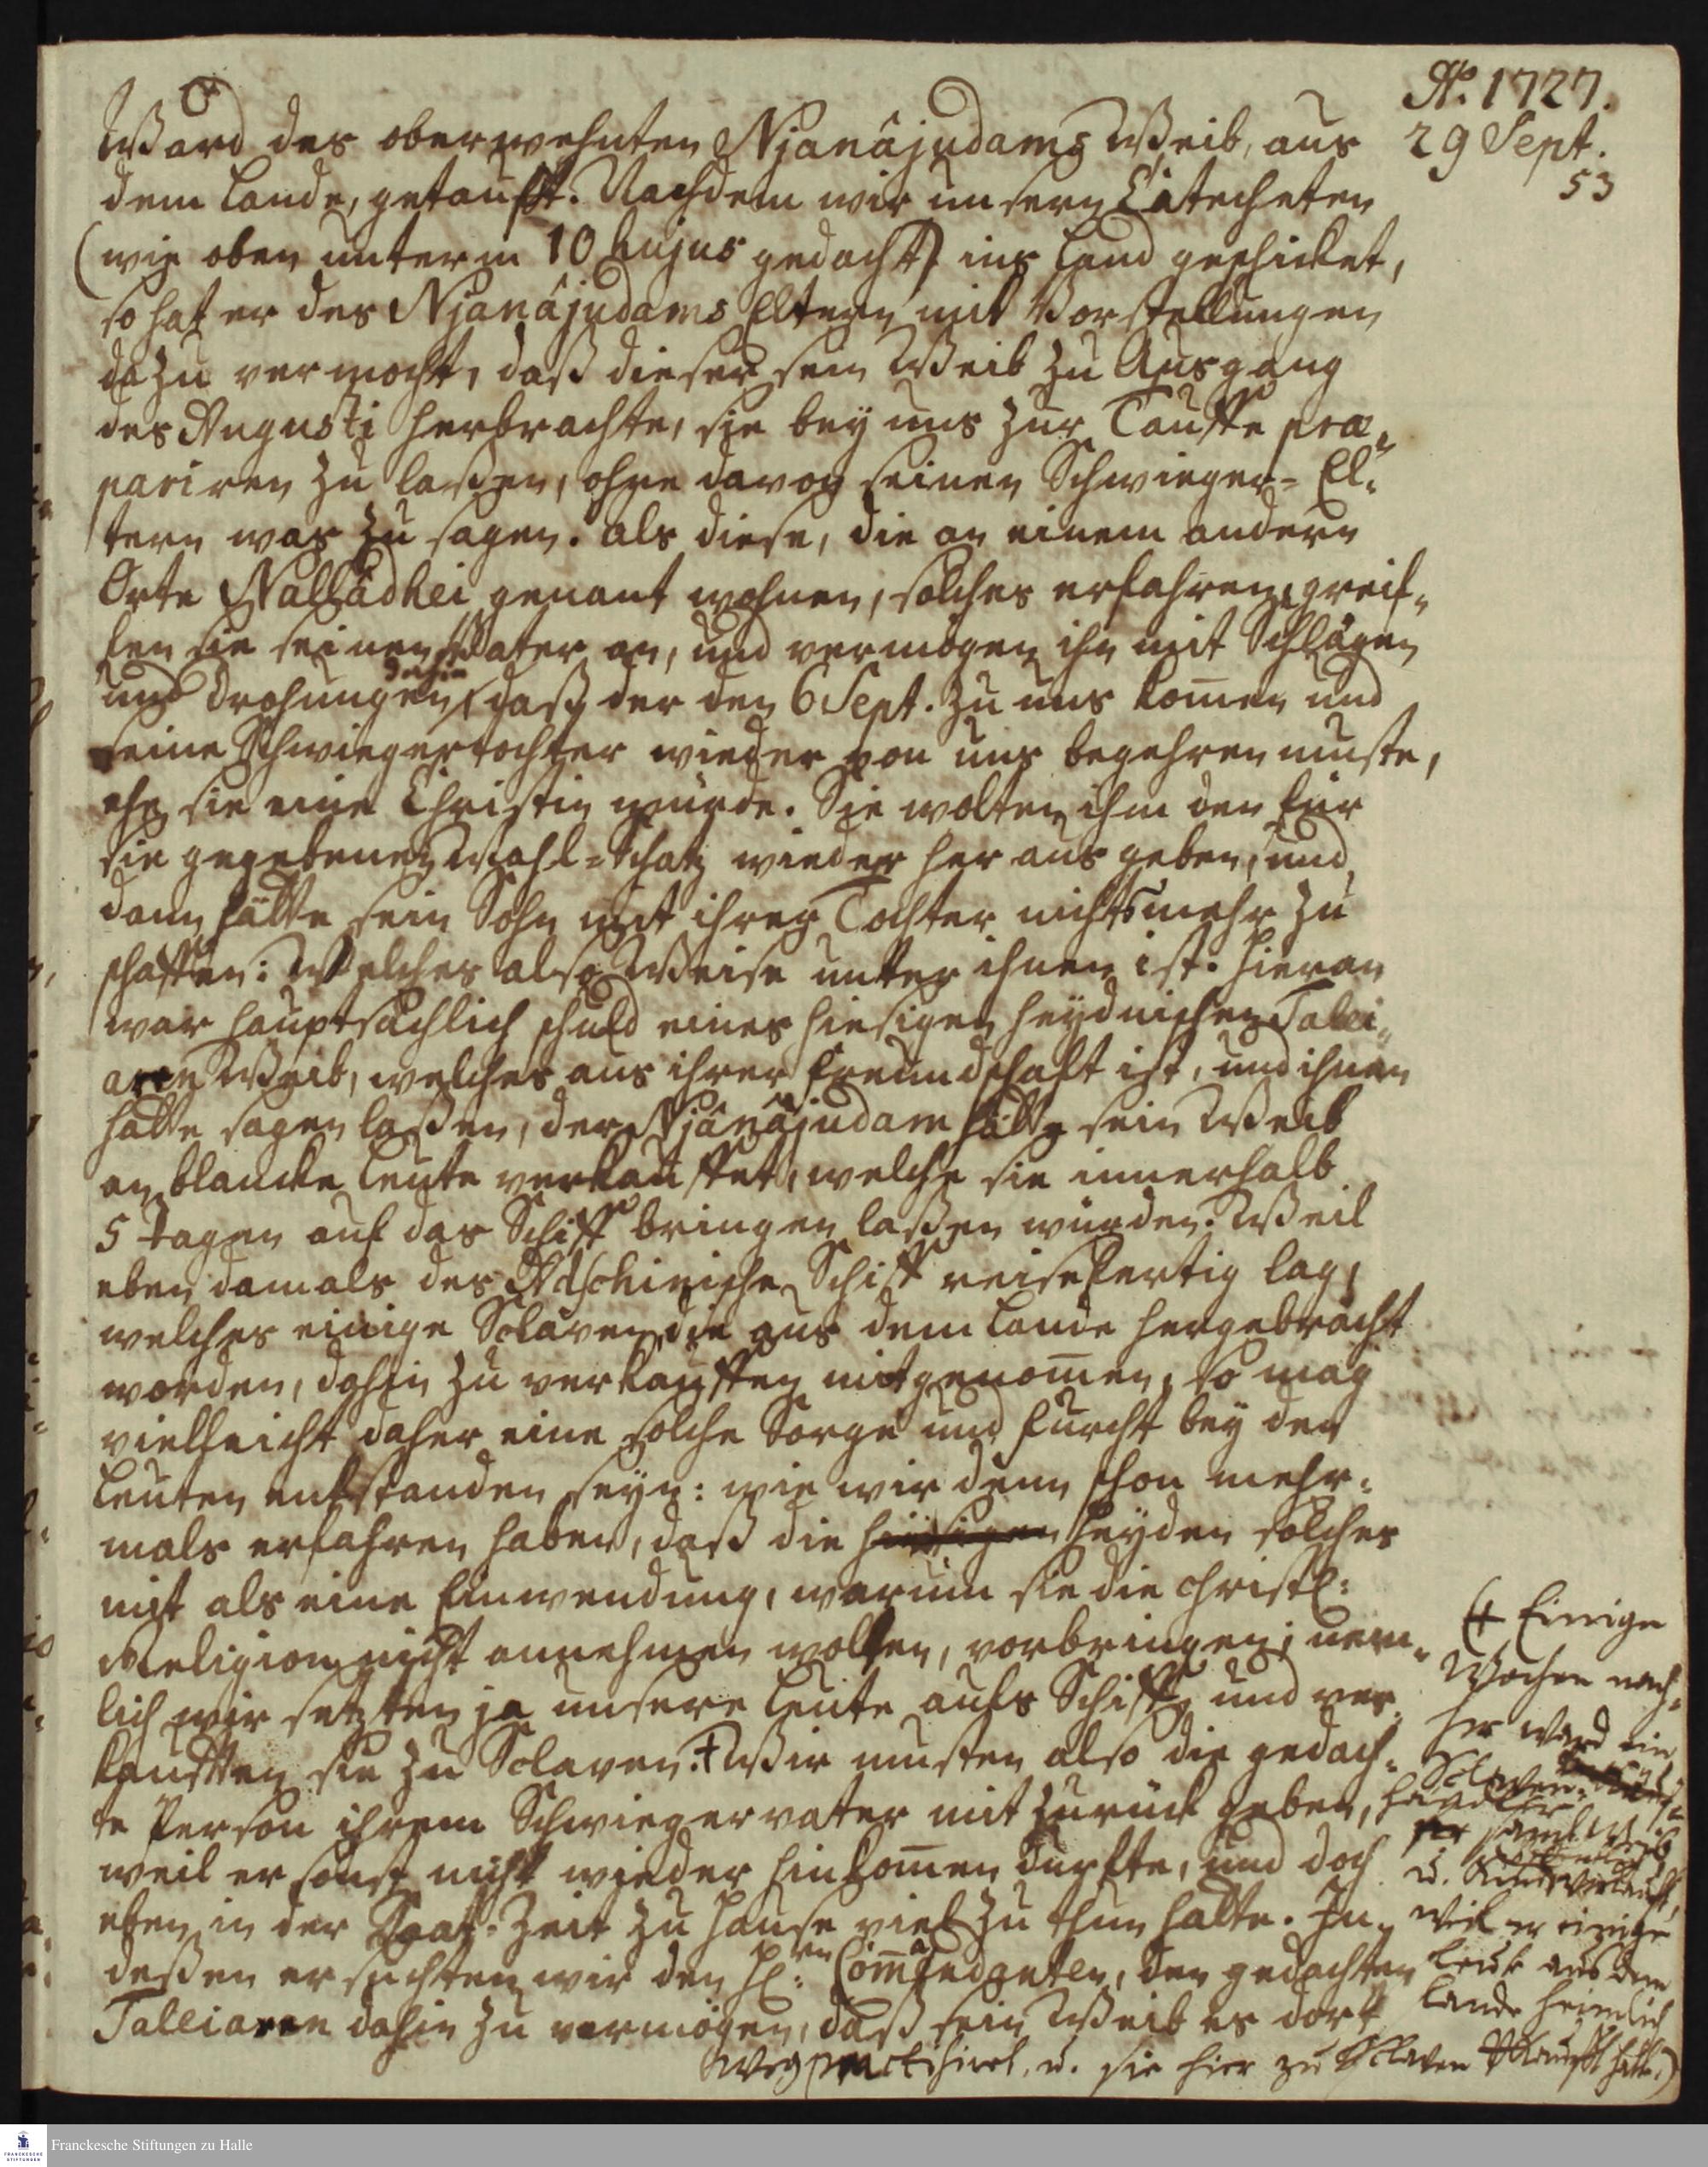 Ao. 1727.
29 Sept.
53
Ward des oberwehnten Njanâjudams Weib, aus
dem Lande, getaufft. Nachdem wir unsern Catecheten
(wie oben unterm 10 hujus gedacht) ins Land geschicket,
so hat er des Njanâjudams Eltern mit Vorstellungen
dazu vermocht, daß dieser sein Weib zu Ausgang
des Augusti herbrachte, sie bey uns zur Tauffe præ-
pariren zu laßen, ohne davon seinen Schwieger-El-
tern was zu sagen. Als diese, die an einem andern
Orte Nallâdhei genant wohnen, solches erfahren, greif-
fen sie seinen Vater an, und vermögen ihn mit Schlägen
und Drohungen dahin, daß der den 6 Sept. zu uns kom̅en und
seine Schwiegertochter wieder von uns begehren muste,
ehe sie eine Christin würde. Sie wolten ihm den für
sie gegebenen Mahl-Schatz wieder heraus geben, und
dann hätte sein Sohn mit ihrer Tochter nichts mehr zu
schaffen: Welches also Weise unter ihnen ist. Hieran
war hauptsächlich schuld eines hiesigen heydnischen Talei-
aren Weib, welches aus ihrer Freundschafft ist, und ihnen
hatte sagen laßen, der Njânâjudam hätte sein Weib
an blancke Leute verkauffet, welche sie innerhalb
5 Tagen auf das Schiff bringen laßen würden. Weil
eben damals das Atschinische Schiff reisefertig lag,
welches einige Sclaven die aus dem Lande hergebracht
worden, dahin zu verkauffen mitgenom̅en, so mag
vielleicht daher eine solche Sorge und Furcht bey den
Leuten entstanden seyn: wie wir denn schon mehr-
mals erfahren haben, daß die hiesigen Heyden solches
mit als eine Einwendung, warum sie die christl:
Religion nicht annehmen wolten, vorbringen; nem-
lich wir setzten ja unsere Leute aufs Schiff, und ver-
kaufften sie zu Sclaven. + Wir musten also die gedach-
te Person ihrem Schwiegervater mit zurück geben,
weil er sonst nicht wieder hinkom̅en durfte, und doch
eben in der Saat-Zeit zu Hause viel zu thun hatte. In-
deßen ersuchten wir den H:rn Com̅endanten, den gedachten
Taleiaren dahin zu vermögen, daß sein Weib es dort
(+ Einige
Wochen nach-
her ward ein
Sclaven-
händler
samt Weib
u. Kind verkaufft,
weil er einige
Leute aus dem
Lande heimlich
weg practisiret, u. sie hier zu Sclaven verkaufft hatte.)
Franckesche Stiftungen zu Halle